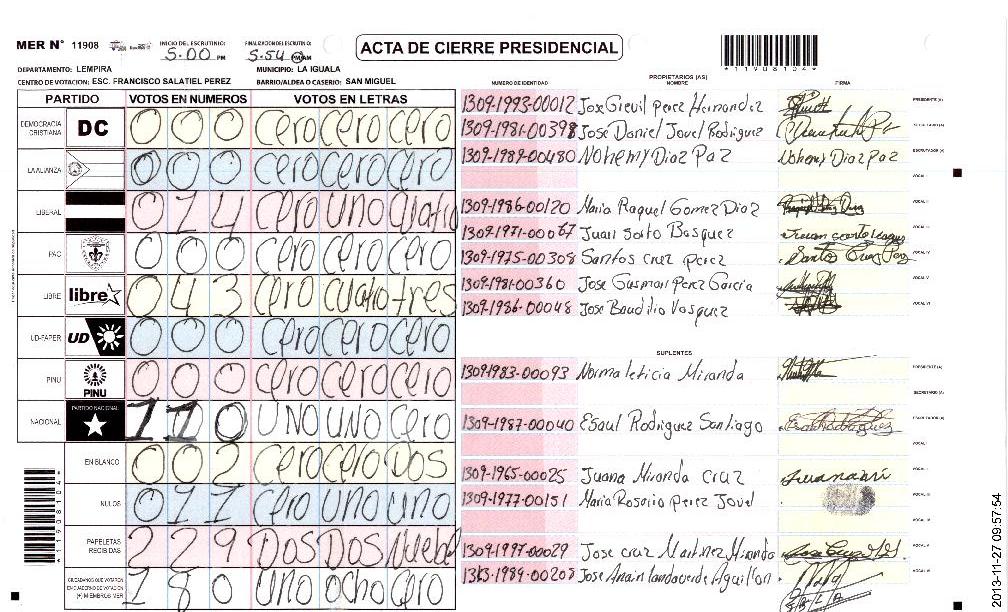 MER N° 11908
INICIO DEL ESCRUTINIO: 5:00 PM
FINALIZACION DEL ESCRUTINIO: 5:54 PM AM
ACTA DE CIERRE PRESIDENCIAL
*11908104*
DEPARTAMENTO: LEMPIRA MUNICIPIO: LA IGUALA
CENTRO DE VOTACION: ESC. FRANCISCO SALATIEL PEREZ BARRIO/ALDEA O CASERIO: SAN MIGUEL
PARTIDO VOTOS EN NUMEROS VOTOS EN LETRAS
DEMOCRACIA CRISTIANA DC 0 0 0 cero cero cero
LA ALIANZA 0 0 0 cero cero cero
LIBERAL 0 1 4 cero uno cuatro
PAC 0 0 0 cero cero cero
LIBRE libre 0 4 3 cero cuatro tres
UD-FAPER UD 0 0 0 cero cero cero
PINU PINU 0 0 0 cero cero cero
NACIONAL PARTIDO NACIONAL 1 1 0 UNO UNO cero
EN BLANCO 0 0 2 cero cero DOS
NULOS 0 1 1 cero uno uno
PAPELETAS RECIBIDAS 2 2 9 DOS DOS Nueve
CIUDADANOS QUE VOTARON EN CUADERNO DE VOTACION (+) MIEMBROS MER 1 8 0 uno ocho cero
*11908104*
PROPIETARIOS (AS)
NUMERO DE IDENTIDAD NOMBRE FIRMA
1309-1993-00012 Jose Grevil perez Hernandez PRESIDENTE (A)
1309-1981-00398 Jose Daniel Jovel Rodriguez SECRETARIO (A)
1309-1989-00480 Nohemy Diaz Paz Nohemy Diaz Paz ESCRUTADOR (A)
VOCAL I
1309-1986-00120 Maria Raquel Gomez Diaz VOCAL II
1309-1971-00067 Juan Sorto Basquez VOCAL III
1309-1975-00308 Santos cruz perez Santo Cruz Perez VOCAL IV
1309-1981-00360 Jose Gusman Perez Garcia VOCAL V
1309-1986-00048 Jose Baudilio Vasquez VOCAL VI
SUPLENTES
1309-1983-00093 Norma leticia Miranda PRESIDENTE (A)
SECRETARIO (A)
1309-1987-00040 Esaul Rodriguez Santiago ESCRUTADOR (A)
VOCAL I
1309-1965-00025 Juana Miranda cruz VOCAL II
1309-1977-00151 Maria Rosario perez Jovel VOCAL III
VOCAL IV
1309-1997-00029 Jose cruz Martinez Miranda VOCAL V
1313-1989-00208 Jose Anain landaverde Aguillon VOCAL VI
2013-11-27 09:57:54